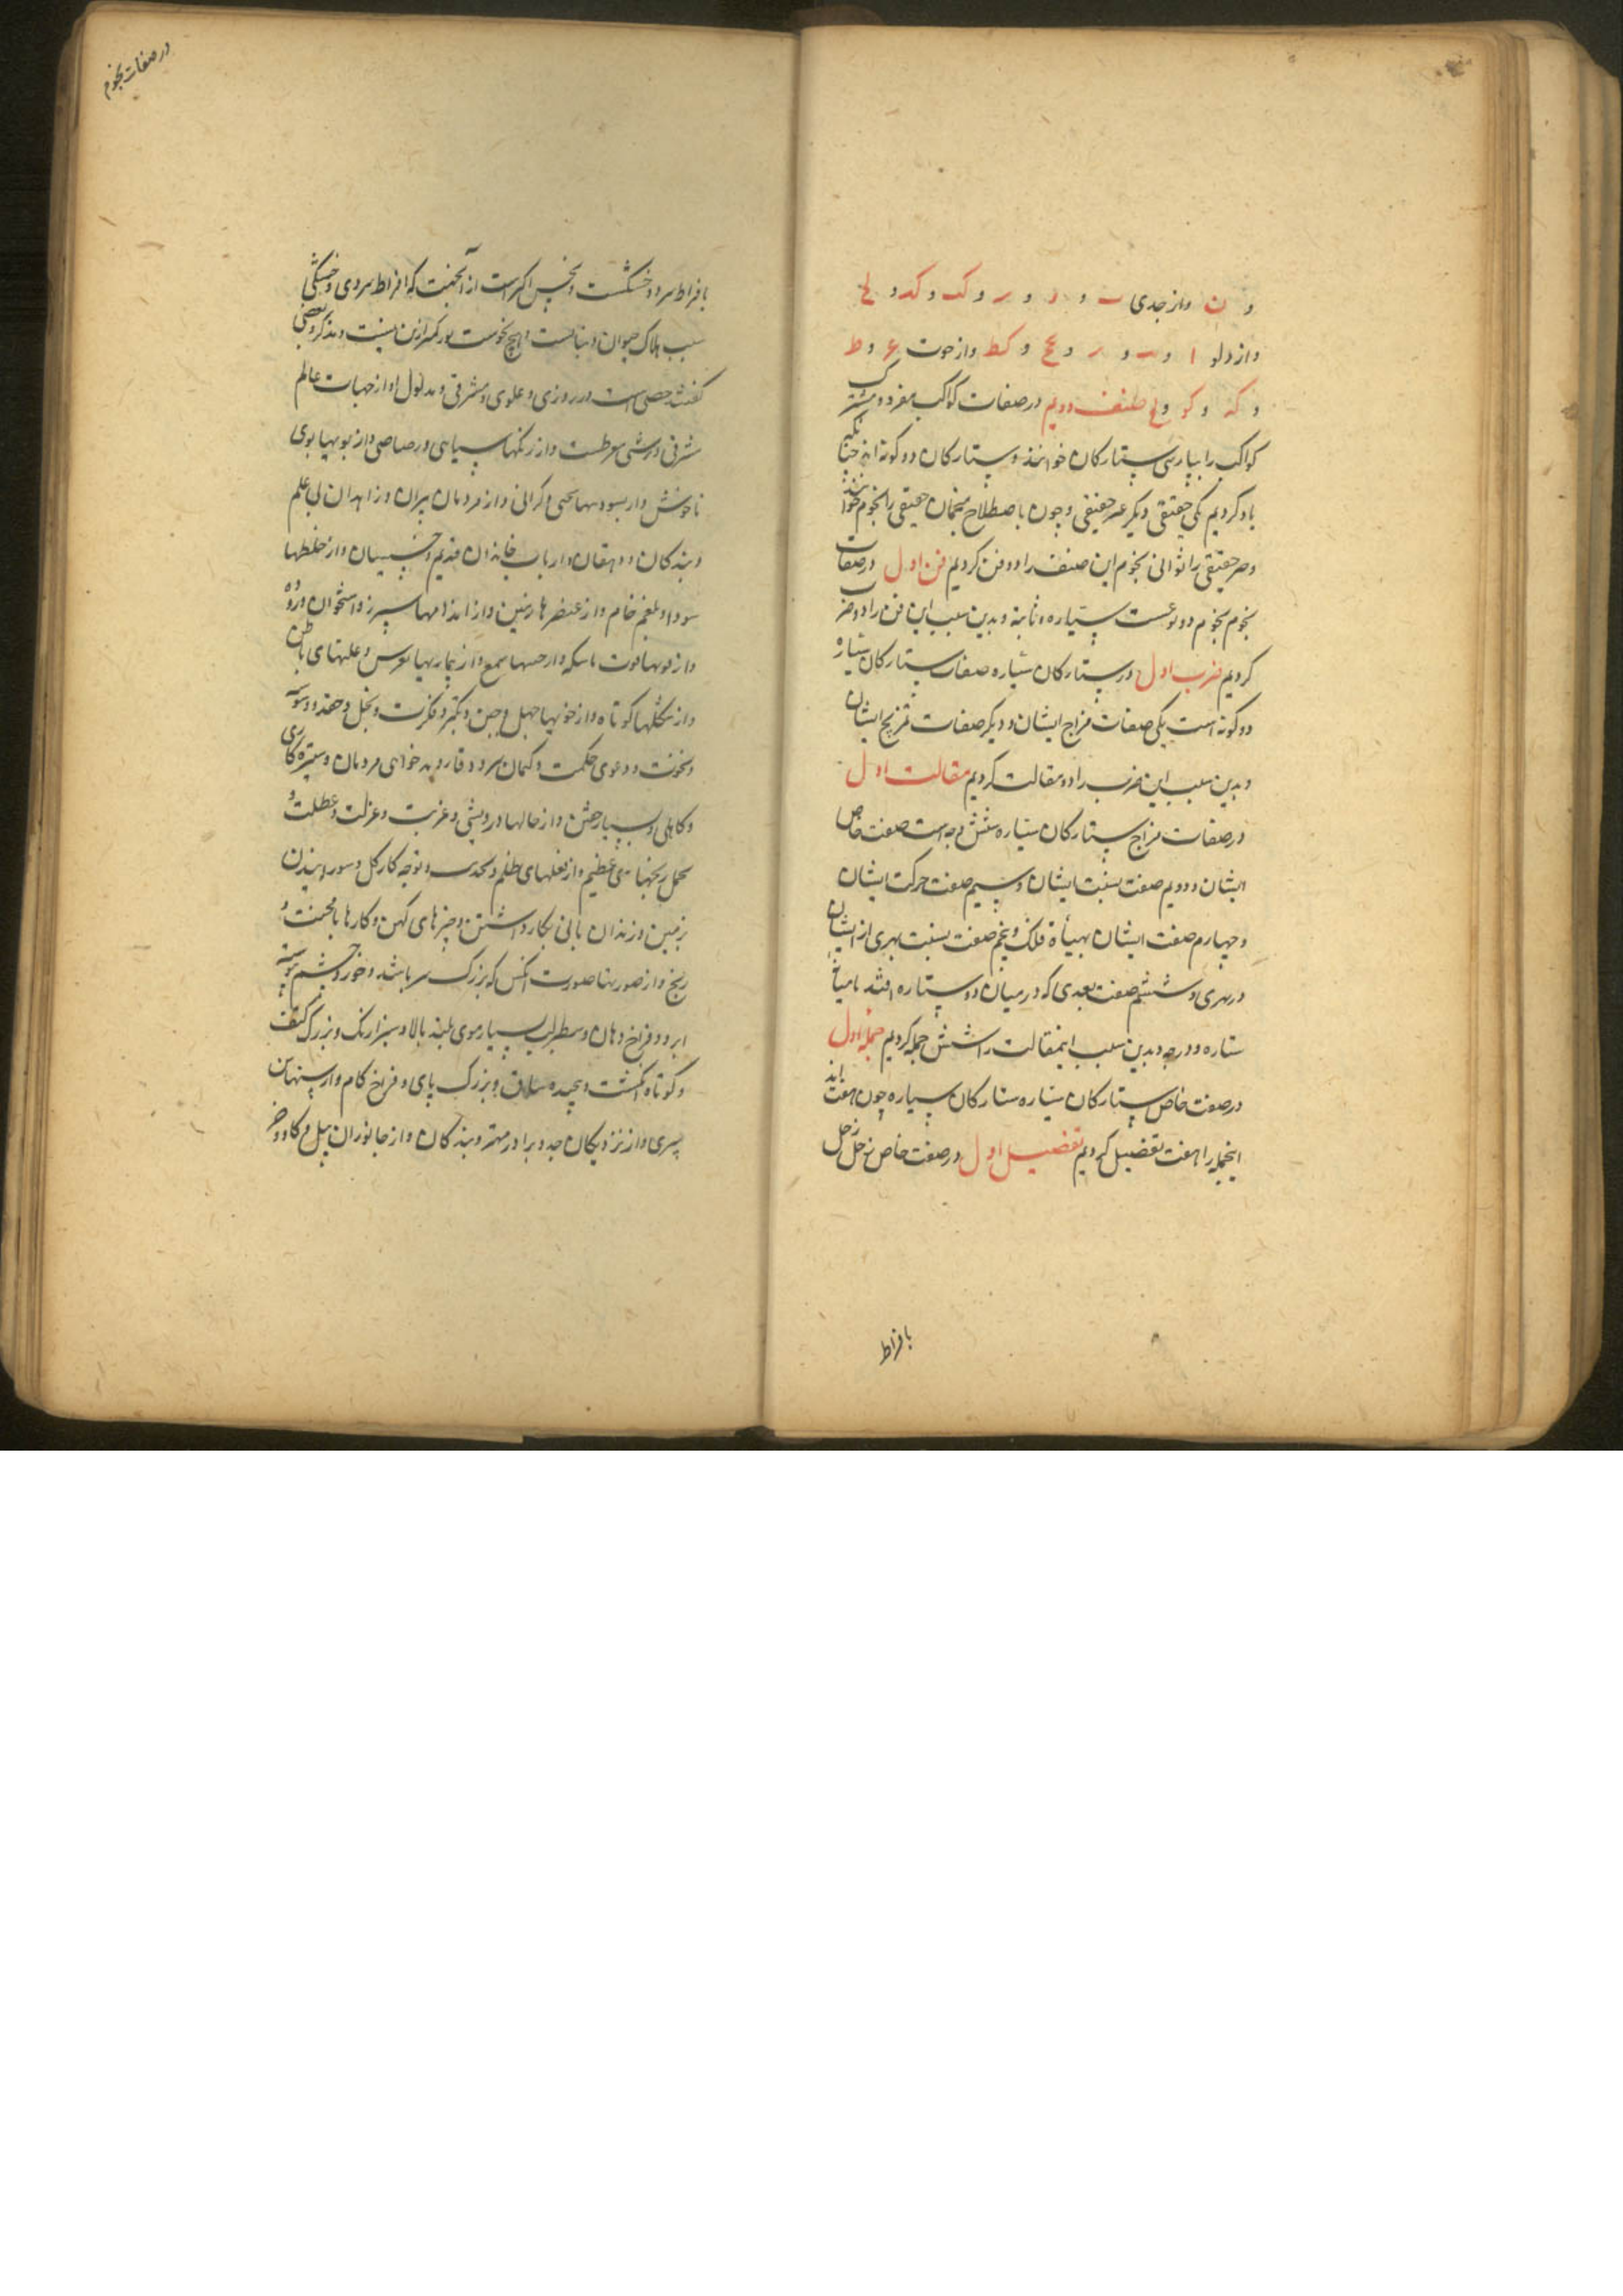 و ن و از جدی و و و کب و کد و ل
و از دلو ا و و و ع و کط و از حوت ع و ط
و که و کو و ل صنف دویم در صفات کواکب مفرد و مشترک
کواکب را بپارسی ستارکان خوانند و ستارکان دو کونه اند چنانکه
یاد کردیم یکی حقیقی و دیکر غیر حقیقی و چون باصطلاح منجمان حقیقی را نجوم خوانند
و غیر حقیقی را ثوانی نجوم این صنف را دو فن کردیم فن اول در صفات
نجوم نجوم دو نوعست سیاره و ثابته و بدین سبب این فن را دو ضرب
کردیم ضرب اول در ستارکان سیاره صفات ستارکان سیاره
دو کونه است یکی صفات مزاج ایشان و دیکر صفات تمزیج ایشان
و بدین سبب این ضرب را دو مقالت کردیم مقالت اول
در صفات مزاج ستارکان سیاره شش وجه است صفت خاص
ایشان و دویم صفت نسبت ایشان و سیم صفت حرکت ایشان
و چهارم صفت ایشان بهیأة فلک و پنجم صفت نسبت بهری از ایشان
در بهری و ششم صفت بعدی که در میان دو ستاره افتد یا میان
ستاره و درجه و بدین سبب اینمقالت را شش جمله کردیم جمله اول
در صفت خاص ستارکان سیاره ستارکان سیاره چون هفت اند
اینجمله را هفت تفصیل کردیم تفصیل اول در صفت خاص زحل زحل
بافراط
در صفات نجوم
بافراط سرد و خشکست و نحس اکبر است از آنجهت که افراط سردی و خشکی
سبب هلاک حیوان و نباتست و هیچ نحوست بور کمتر ازین نیست و مذکر و بعضی
کفتند خصی است و روزی و علوی و مشرقی و مدلول او از جهات عالم
مشرقی و ترشی مفرطست و از رنکها سیاهی و رصاصی و از بویها بوی
ناخوش و از بسودنیها سختی و کرانی و از مردمان پیران و زاهدان بی علم
و بندکان و دهقان و ارباب خاندان قدیم و خسیسان و از خلطها
سودا و بلغم خام و از عنصرها زمین و از اندامها سپرز و استخوان و روده
و از قوتها قوت ماسکه و از حسها سمع و از بیماریها نقرس و علتهای باطن
و از شکلها کوتاه و از خویها جهل و جبن و تکبر و فکرت و بخل و حقد و وسوسه
و نخوت و دعوی حکمت و کتمان سر و وقار و بد خواهی مردمان و ستیزه کاری
و کاهلی و بسیار خفتن و از حالها درویشی و غربت و عزلت و عطلت و
تحمل رنجهای عظیم و از فعلهای ظلم و و کار کل و
زمین و زندان بانی بکار داشتن و چیزهای کهن و کارها بامحنت و
رنج و از صورتها صورت آنکس که بزرک سر باشد و خورد چشم پیوسته
ابرو و فراخ دهان و سطبر لب بسیار موی بلند بالا و سبزارنک و بزرک کتف
و کوتاه انکشت و پیچیده ساق و بزرک پای و فراخ کام و از سنها سن
پیری و از نزدیکان جد و برادر مهتر و بندکان و از جانوران پیل و کاو و خر